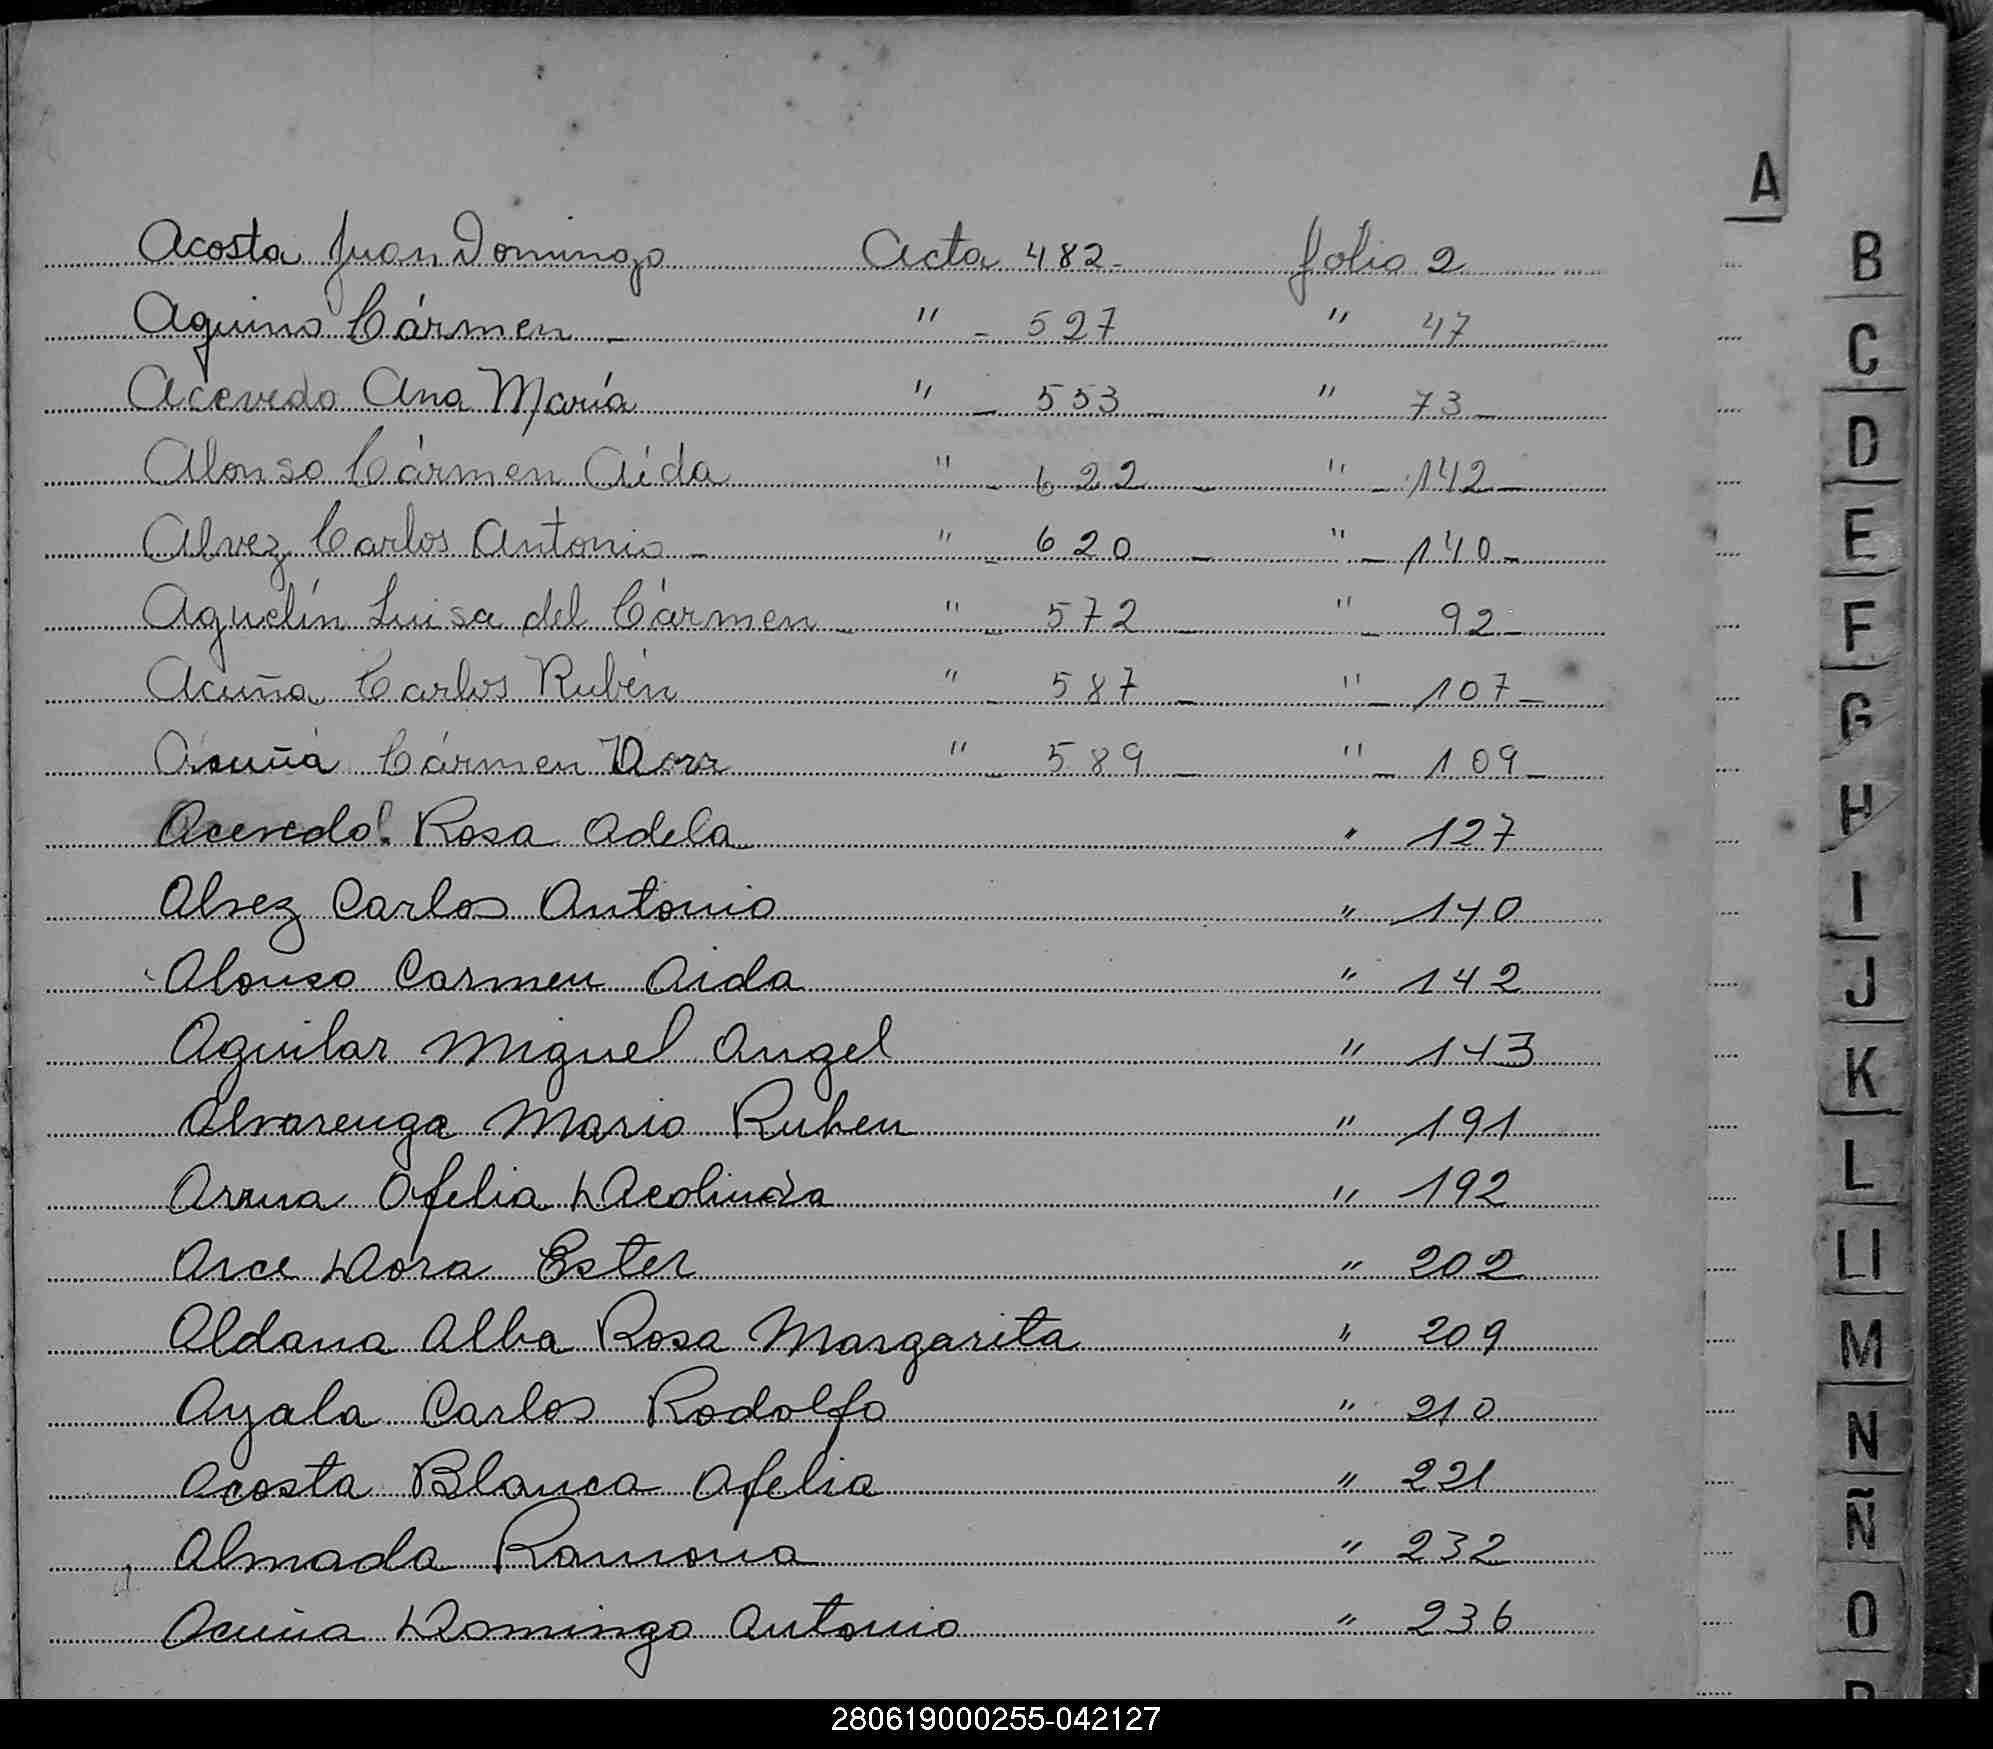 A
Acosta Juan Domingo Acta 482 - folio 2
Aquino Cármen - " - 527 " 47
Acevedo Ana María " - 553 - " 73 -
Alonso Cármen Aída " - 622 - " - 142 -
Alvez Carlos Antonio - " - 620 - " - 140 -
Aguelín Luisa del Cármen - " - 572 - " - 92 -
Acuña Carlos Rubén " - 587 - " - 107 -
Acuña Cármen " - 589 - " - 109 -
Acevedo Rosa Adela " 127
Alvez Carlos Antonio " 140
Alonso Carmen Aida " 142
Aguilar Miguel Angel " 143
Alvarenga Mario Ruben " 191
Arrua Ofelia Deolinda " 192
Arce Dora Ester " 202
Aldana Alba Rosa Margarita " 209
Ayala Carlos Rodolfo " 210
Acosta Blanca Ofelia " 221
Almada Ramona " 232
Acuña Domingo Antonio " 236
B
C
D
E
F
G
H
I
J
K
L
Ll
M
N
Ñ
O
280619000255-042127